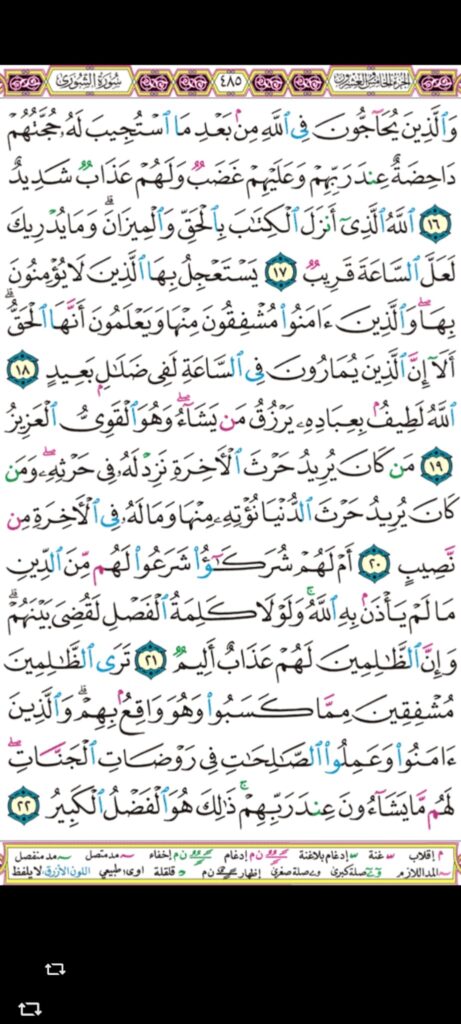 الجزء الخامس والعشرون ٤٨٥ سورة الشورى
وَٱلَّذِينَ يُحَآجُّونَ فِى ٱللَّهِ مِنۢ بَعْدِ مَا ٱسْتُجِيبَ لَهُۥ حُجَّتُهُمْ
دَاحِضَةٌ عِندَ رَبِّهِمْ وَعَلَيْهِمْ غَضَبٌ وَلَهُمْ عَذَابٌ شَدِيدٌ
١٦ ٱللَّهُ ٱلَّذِىٓ أَنزَلَ ٱلْكِتَٰبَ بِٱلْحَقِّ وَٱلْمِيزَانَ ۗ وَمَا يُدْرِيكَ
لَعَلَّ ٱلسَّاعَةَ قَرِيبٌ ١٧ يَسْتَعْجِلُ بِهَا ٱلَّذِينَ لَا يُؤْمِنُونَ
بِهَا ۖ وَٱلَّذِينَ ءَامَنُوا۟ مُشْفِقُونَ مِنْهَا وَيَعْلَمُونَ أَنَّهَا ٱلْحَقُّ ۗ
أَلَآ إِنَّ ٱلَّذِينَ يُمَارُونَ فِى ٱلسَّاعَةِ لَفِى ضَلَٰلٍۭ بَعِيدٍ ١٨
ٱللَّهُ لَطِيفٌۢ بِعِبَادِهِۦ يَرْزُقُ مَن يَشَآءُ ۖ وَهُوَ ٱلْقَوِىُّ ٱلْعَزِيزُ
١٩ مَن كَانَ يُرِيدُ حَرْثَ ٱلْءَاخِرَةِ نَزِدْ لَهُۥ فِى حَرْثِهِۦ ۖ وَمَن
كَانَ يُرِيدُ حَرْثَ ٱلدُّنْيَا نُؤْتِهِۦ مِنْهَا وَمَا لَهُۥ فِى ٱلْءَاخِرَةِ مِن
نَّصِيبٍ ٢٠ أَمْ لَهُمْ شُرَكَٰٓؤُا۟ شَرَعُوا۟ لَهُم مِّنَ ٱلدِّينِ
مَا لَمْ يَأْذَنۢ بِهِ ٱللَّهُ ۚ وَلَوْلَا كَلِمَةُ ٱلْفَصْلِ لَقُضِىَ بَيْنَهُمْ ۗ
وَإِنَّ ٱلظَّٰلِمِينَ لَهُمْ عَذَابٌ أَلِيمٌ ٢١ تَرَى ٱلظَّٰلِمِينَ
مُشْفِقِينَ مِمَّا كَسَبُوا۟ وَهُوَ وَاقِعٌۢ بِهِمْ ۗ وَٱلَّذِينَ
ءَامَنُوا۟ وَعَمِلُوا۟ ٱلصَّٰلِحَٰتِ فِى رَوْضَاتِ ٱلْجَنَّاتِ ۖ
لَهُم مَّا يَشَآءُونَ عِندَ رَبِّهِمْ ۚ ذَٰلِكَ هُوَ ٱلْفَضْلُ ٱلْكَبِيرُ ٢٢
م إقلاب غنة إدغام بلاغنة ن م إدغام ن م إخفاء مد متصل مد منفصل
المد اللازم صلة كبرى صلة صغرى إظهار ن م قلقلة اوى: طبيعي اللون الأزرق: لا يلفظ